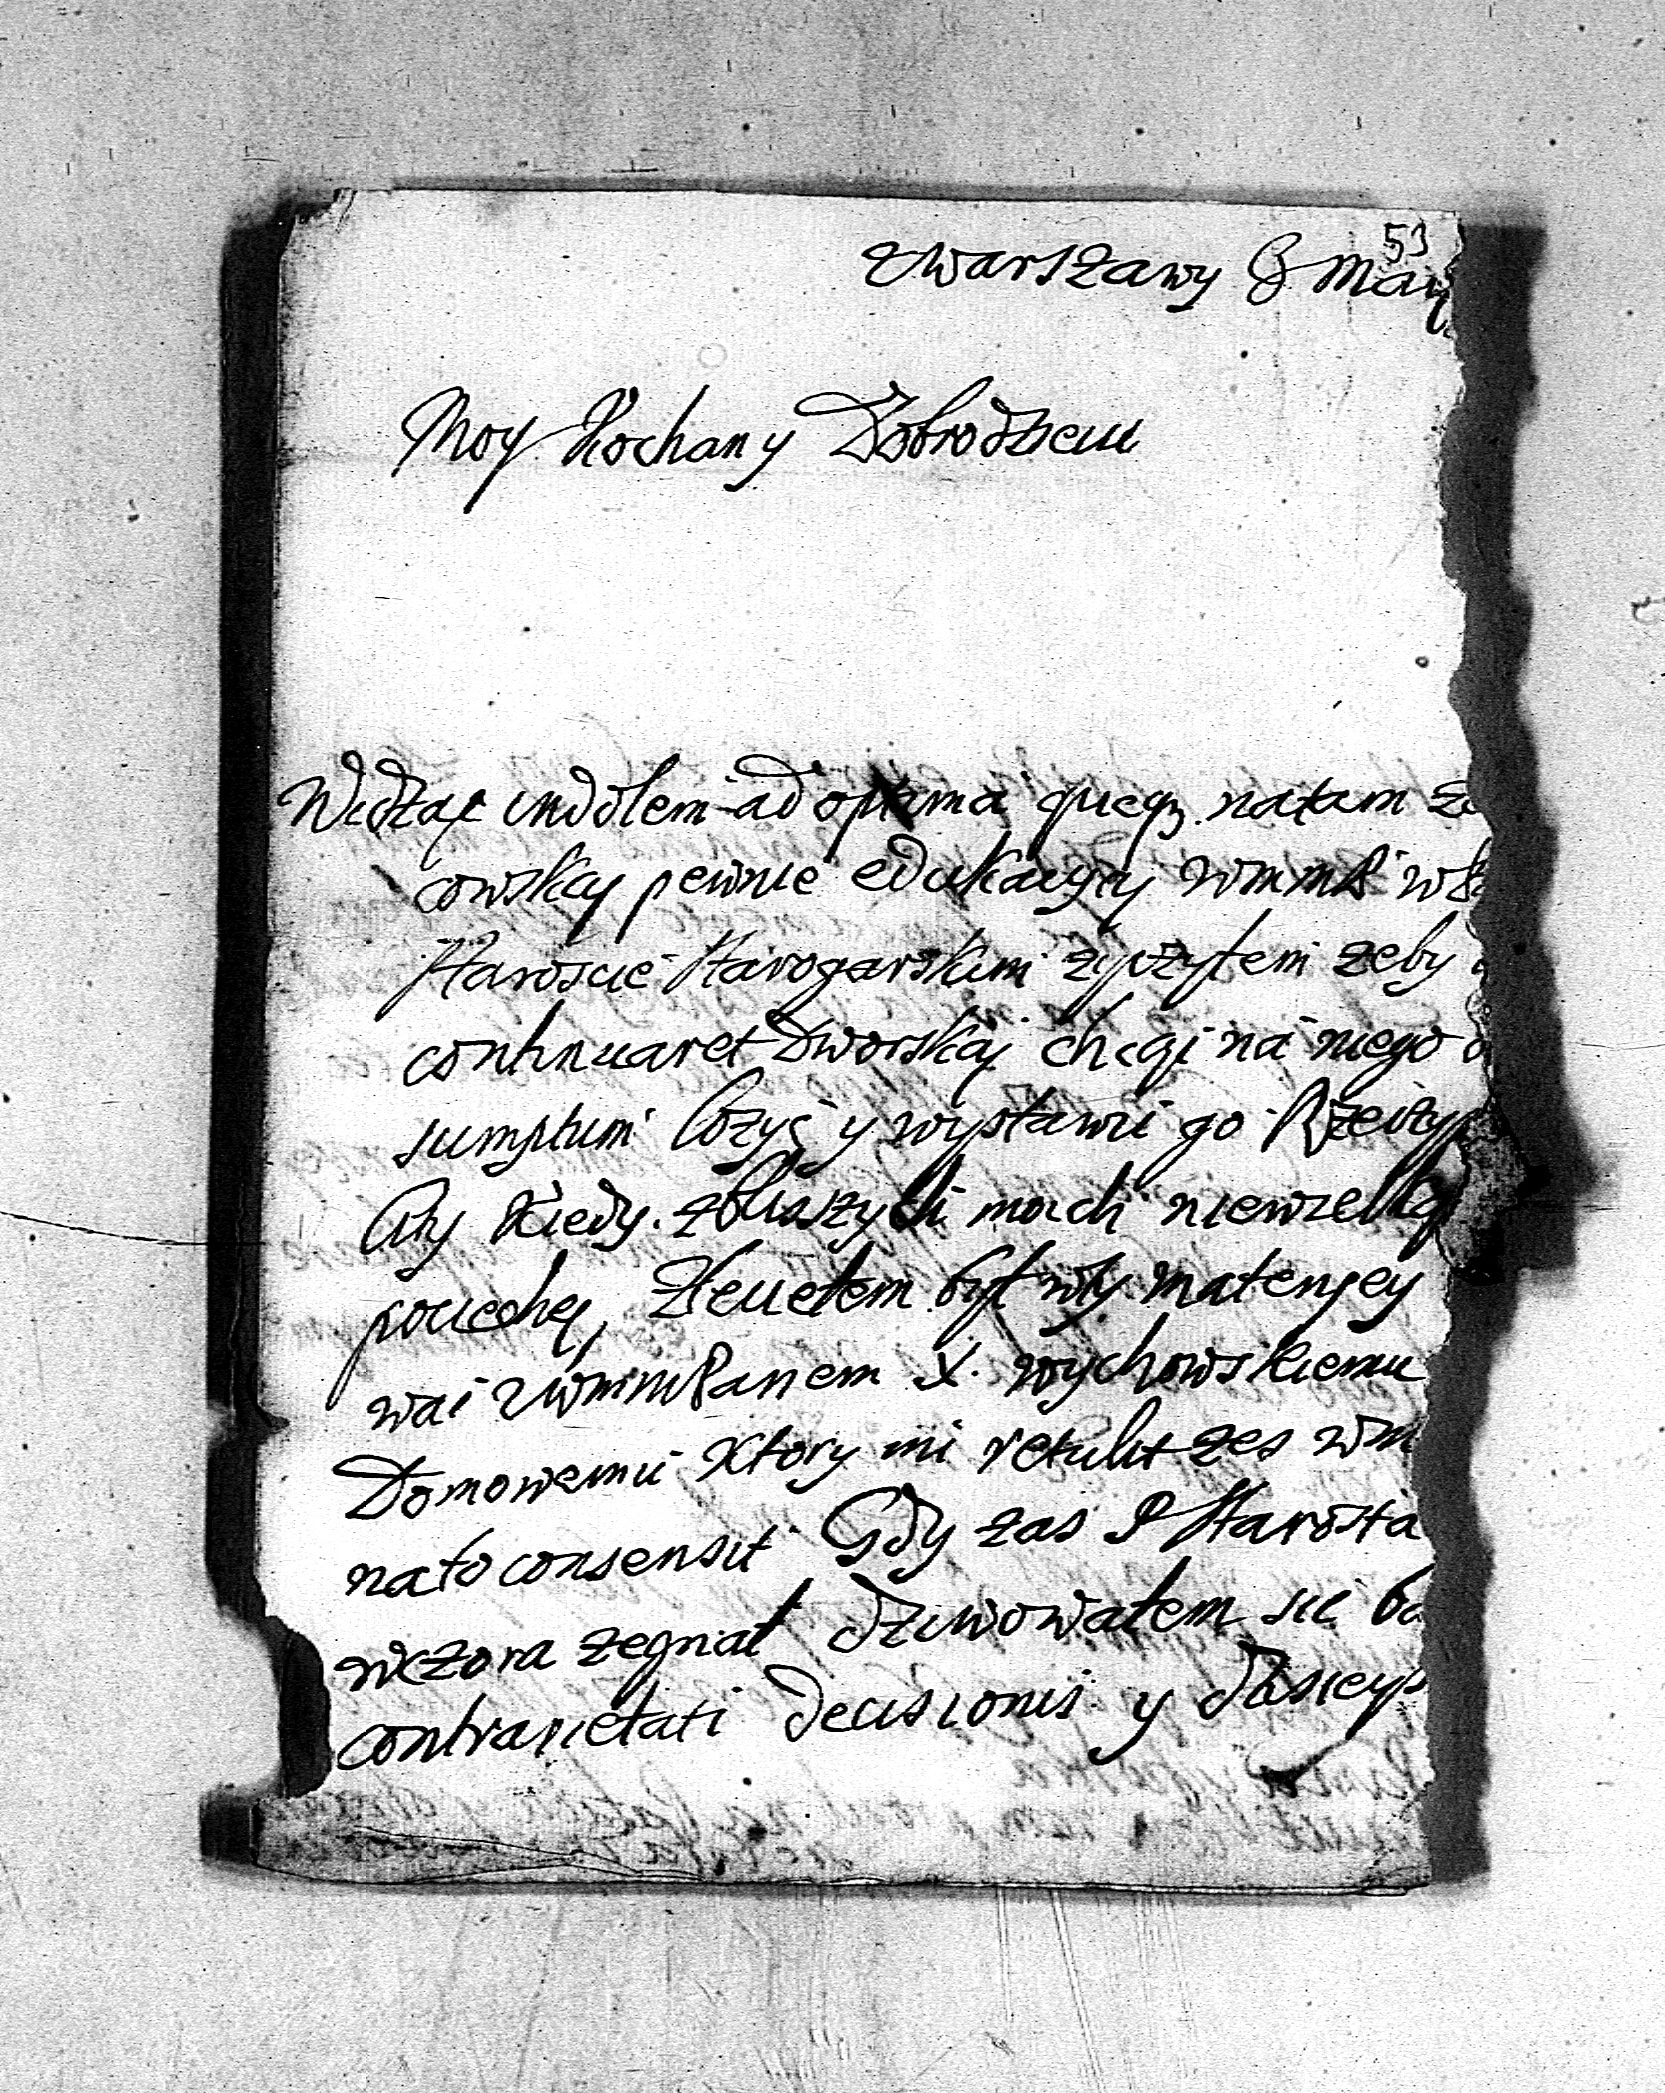 53
zwarszawy 8 May
Moy Kochany Dobrodzieiu
Widząc indolem ad optima quęq. natam
cowskiey pewnie edukacyiey wmm
Staroscie Starogarskim zyczyłem zeby
continuaret dworskiey chcąc na niego
sumptum łozyc y wystawic go Rzeczyp
Aby Kiedy z bliszych moich niewielką
pociechę, Zleciełem był wty materyey
wac zwmmPanem X. Wychowskiemu
Domowemu Ktory mi retulit zes wm
nato consensit Gdy zas P Starosta
wczora zegnał dziwowałem się ba
contrarietati decisionis y